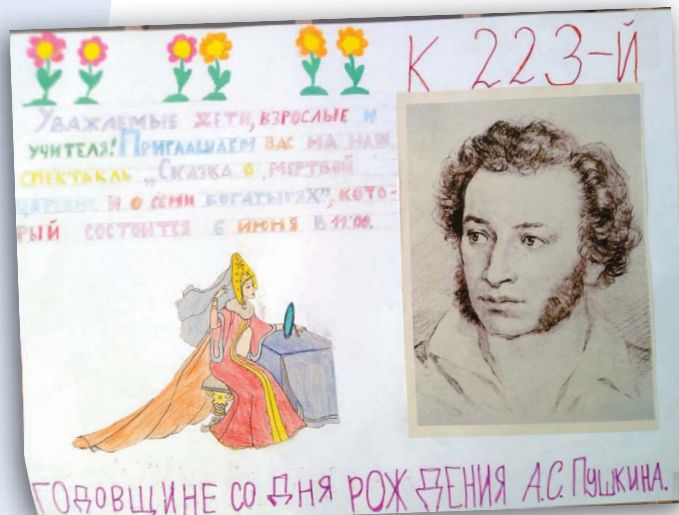 К 223-Й
УВАЖАЕМЫЕ ДЕТИ, ВЗРОСЛЫЕ И
УЧИТЕЛЯ! ПРИГЛАШАЕМ ВАС НА НАШ
СПЕКТАКЛЬ „СКАЗКА О МЕРТВОЙ
ЦАРЕВНЕ И О СЕМИ БОГАТЫРЯХ", КОТО-
РЫЙ СОСТОИТСЯ 6 ИЮНЯ В 11:00.
ГОДОВЩИНЕ СО ДНЯ РОЖДЕНИЯ А.С. ПУШКИНА.